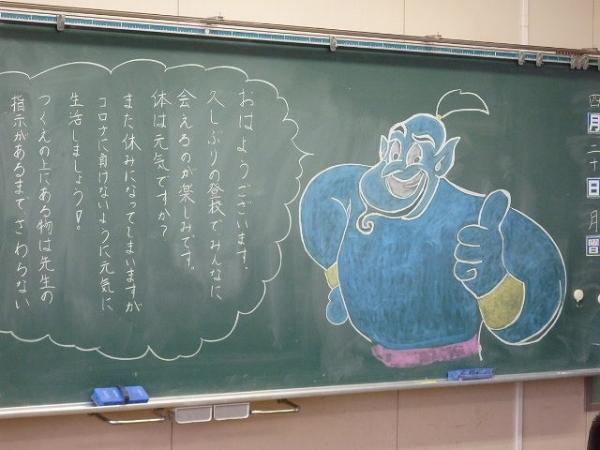 おはようございます.
久しぶりの登校でみんなに
会えるのが楽しみです。
体は元気ですか?
また休みになってしまいますが
コロナに負けないように元気に
生活しましょう!
つくえの上にある物は先生の
指示があるまで さわらない
四月二十日月曜